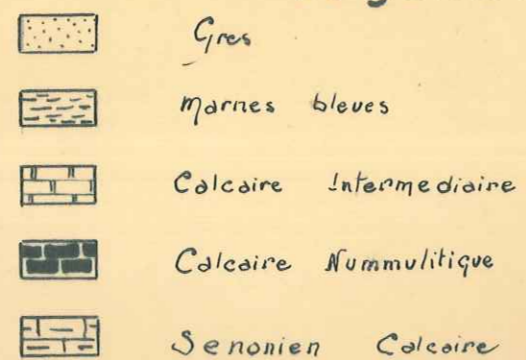 Gres
Marnes bleues
Calcaire Intermediaire
Calcaire Nummulitique
Senonien Calcaire